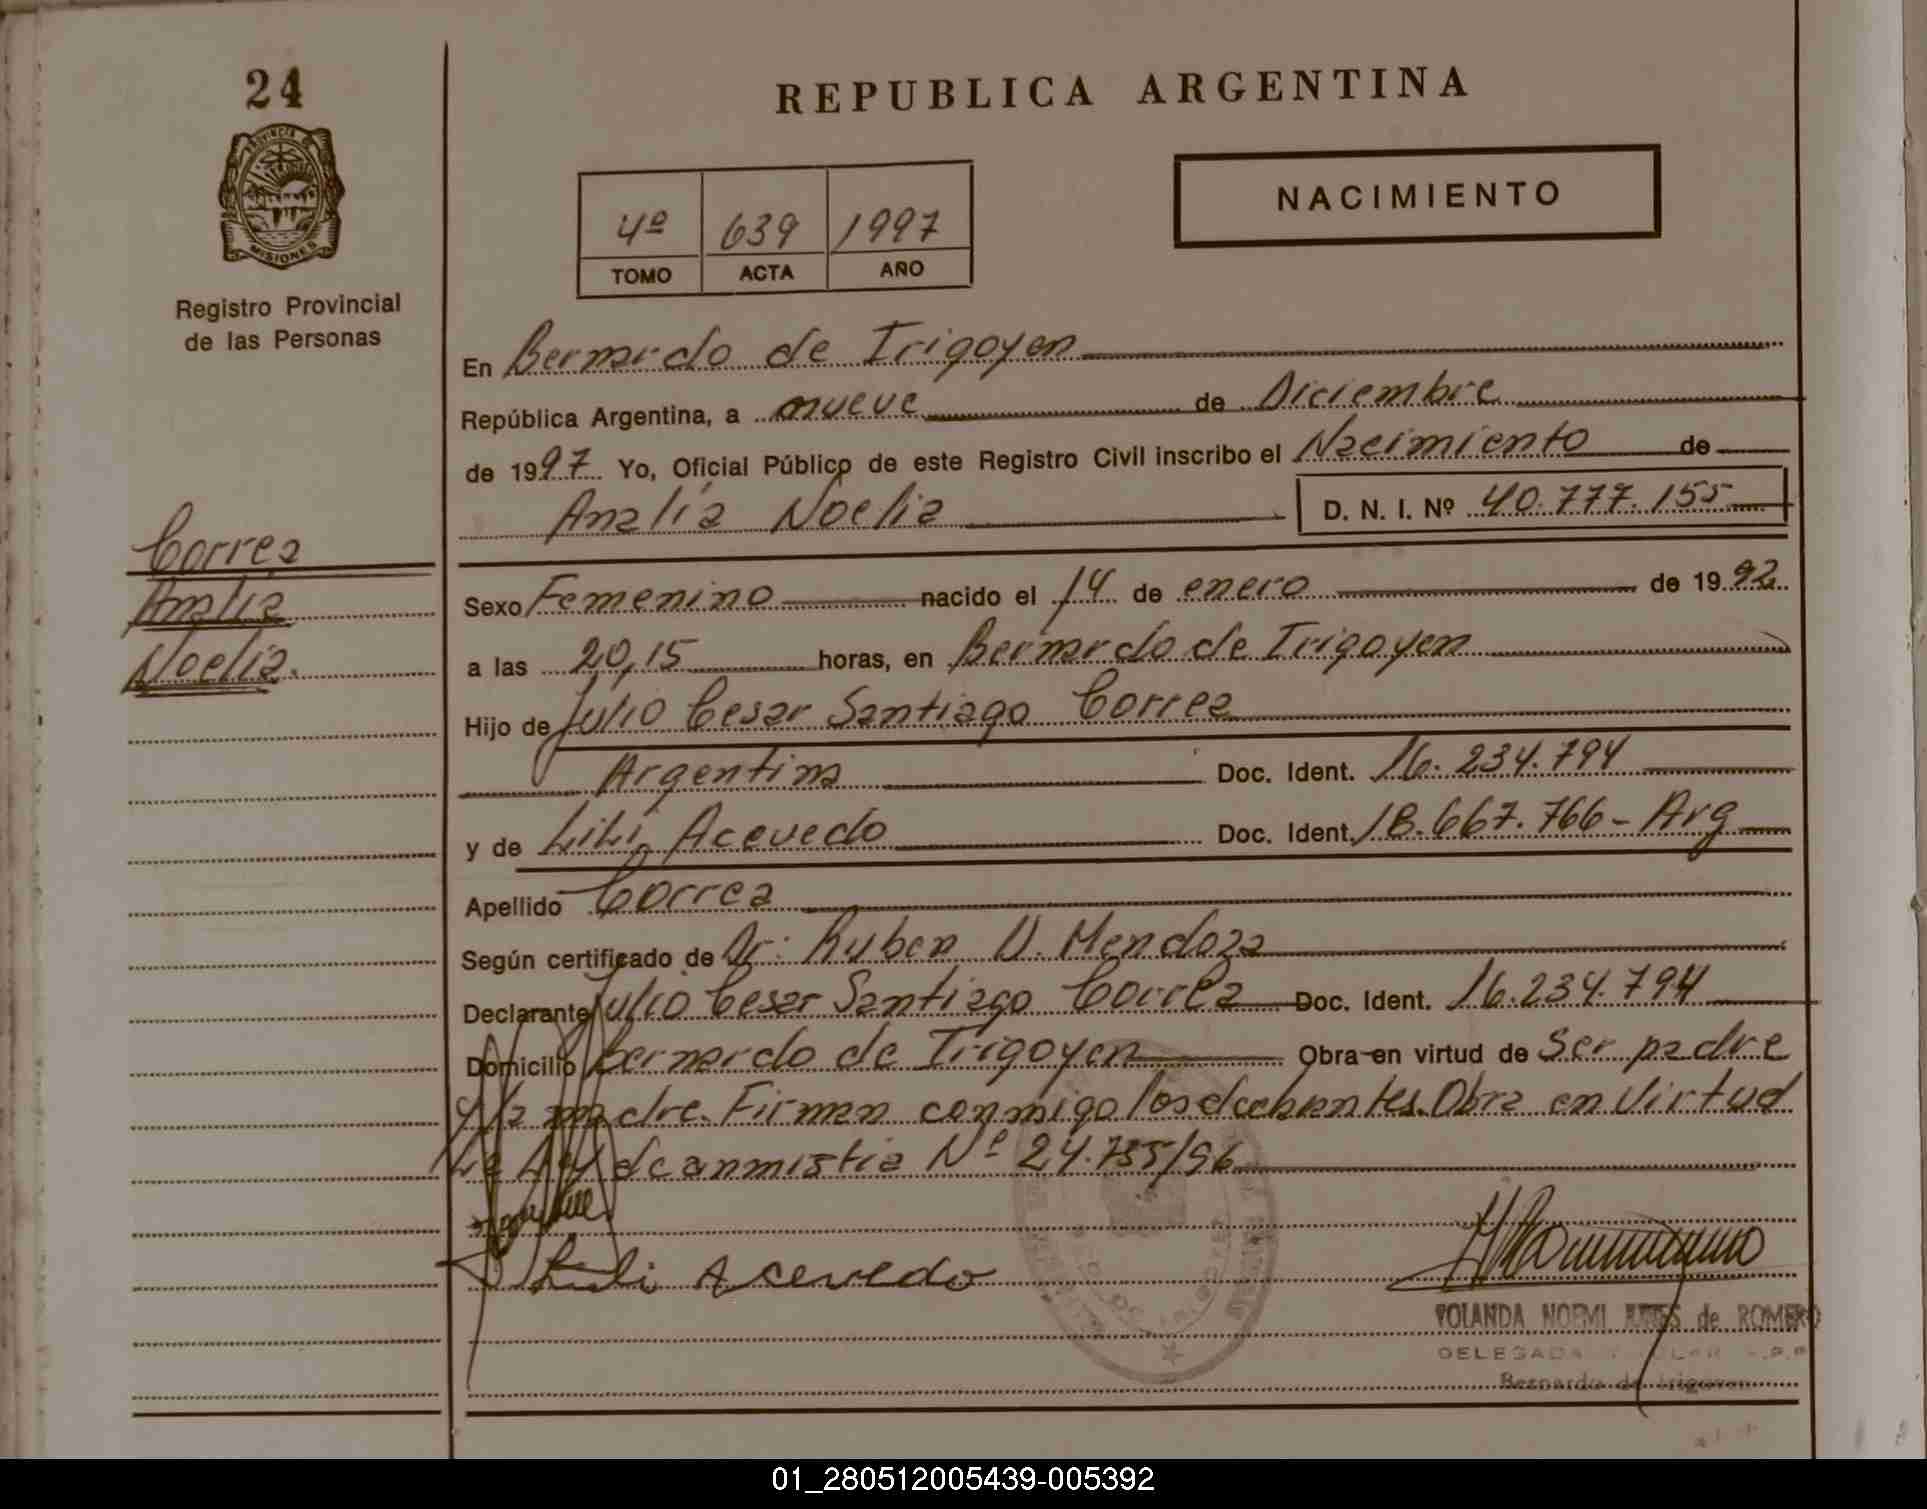 24
PROVINCIA DE
MISIONES
Registro Provincial
de las Personas
REPUBLICA ARGENTINA
NACIMIENTO
4º 639 1997
TOMO ACTA AÑO
En Bernardo de Irigoyen
República Argentina, a nueve de Diciembre
de 1997 Yo, Oficial Público de este Registro Civil inscribo el Nacimiento de
Analía Noelia D. N. I. Nº 40.777.155
Correa
Analía
Noelia.
Sexo Femenino nacido el 14 de enero de 1992
a las 20,15 horas, en Bernardo de Irigoyen
Hijo de Julio Cesar Santiago Correa
Argentina Doc. Ident. 16.234.794
y de Lili Acevedo Doc. Ident. 18.667.766 - Arg
Apellido Correa
Según certificado de Dr: Ruben D. Mendoza
Declarante Julio Cesar Santiago Correa Doc. Ident. 16.234.794
Domicilio Bernardo de Irigoyen Obra en virtud de Ser padre
y la madre. Firman conmigo los Obra en Virtud
La Ley de anmistia Nº 24.755/96
Lili Acevedo
YOLANDA NOEMI de ROMERO
DELEGADA
Bernardo de Irigoyen
01_280512005439-005392